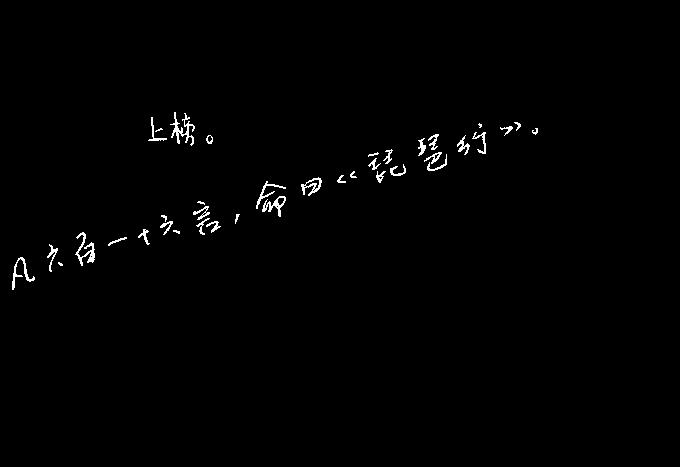 上榜。
凡六百一十六言，命曰《琵琶行》。